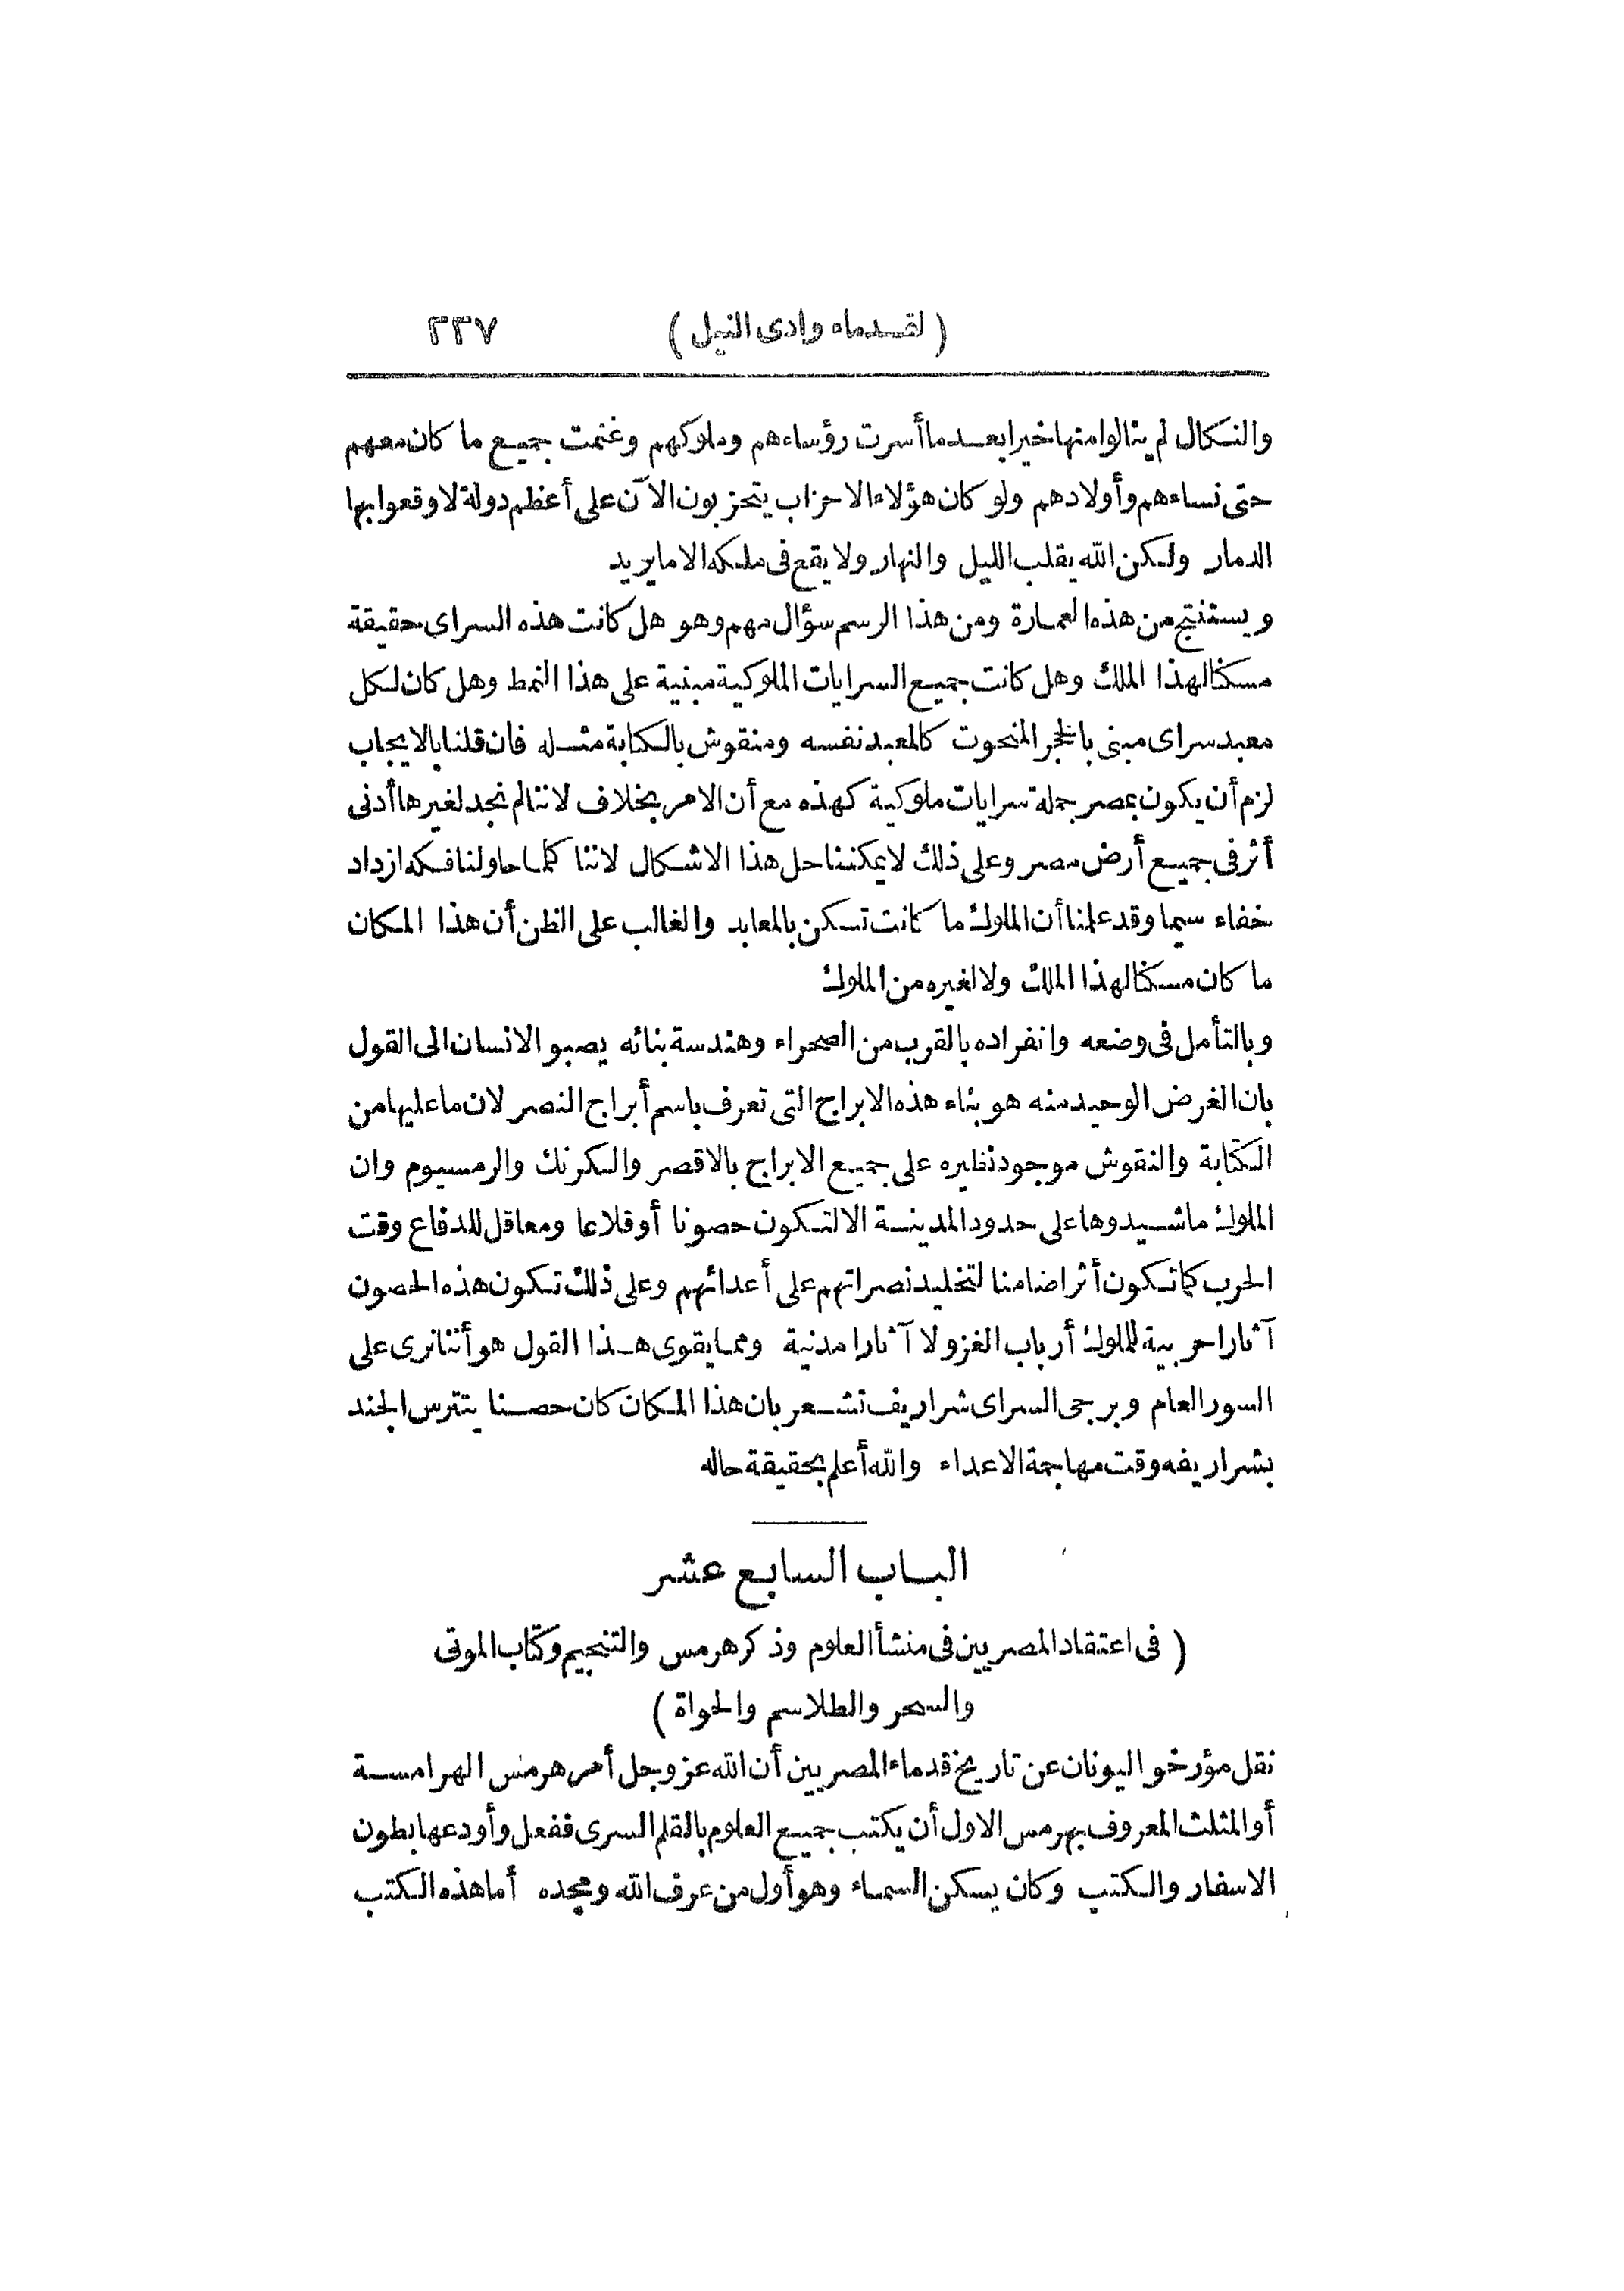 (لقدماء وادى النيل) ٢٣٧
والنكال لم ينالوا منها خيرا بعدما أسرت رؤساءهم وملوكهم وغنمت جميع ما كان معهم
حتى نساءهم وأولادهم ولو كان هؤلاء الاحزاب يتحزبون الآن على أعظم دولة لاوقعوا بها
الدمار ولكن الله يقلب الليل والنهار ولا يقع فى ملكه الا ما يريد
ويستنتج من هذه العمارة ومن هذا الرسم سؤال مهم وهو هل كانت هذه السراى حقيقة
مسكنا لهذا الملك وهل كانت جميع السرايات الملوكية مبنية على هذا النمط وهل كان لكل
معبد سراى مبنى بالحجر المنحوت كالمعبد نفسه ومنقوش بالكتابة مثله فان قلنا بالايجاب
لزم أن يكون بمصر جملة سرايات ملوكية كهذه مع أن الامر بخلاف لاننا لم نجد لغيرها أدنى
أثر فى جميع أرض مصر وعلى ذلك لا يمكننا حل هذا الاشكال لاننا كلما حاولنا فكه ازداد
خفاء سيما وقد علمنا أن الملوك ما كانت تسكن بالمعابد والغالب على الظن أن هذا المكان
ما كان مسكنا لهذا الملك ولا لغيره من الملوك
وبالتأمل فى وضعه وانفراده بالقرب من الصحراء وهندسة بنائه يصبو الانسان الى القول
بان الغرض الوحيد منه هو بناء هذه الابراج التى تعرف باسم أبراج النصر لان ما عليها من
الكتابة والنقوش موجود نظيره على جميع الابراج بالاقصر والكرنك والرمسيوم وان
الملوك ما شيدوها على حدود المدينة الا لتكون حصونا أو قلاعا ومعاقل للدفاع وقت
الحرب كما تكون أثرا ضامنا لتخليد نصراتهم على أعدائهم وعلى ذلك تكون هذه الحصون
آثارا حربية للملوك أرباب الغزو لا آثارا مدنية ومما يقوى هذا القول هو أننا نرى على
السور العام وبرجى السراى شراريف تشعر بان هذا المكان كان حصنا يتترس الجند
بشراريفه وقت مهاجمة الاعداء والله أعلم بحقيقة حاله
الباب السابع عشر
(فى اعتقاد المصريين فى منشأ العلوم وذكر هرمس والتنجيم وكتاب الموتى
والسحر والطلاسم والحواة)
نقل مؤرخو اليونان عن تاريخ قدماء المصريين أن الله عز وجل أمر هرمس الهرامسة
أو المثلث المعروف بهرمس الاول أن يكتب جميع العلوم بالقلم السرى ففعل وأودعها بطون
الاسفار والكتب وكان يسكن السماء وهو أول من عرف الله ومجده أما هذه الكتب